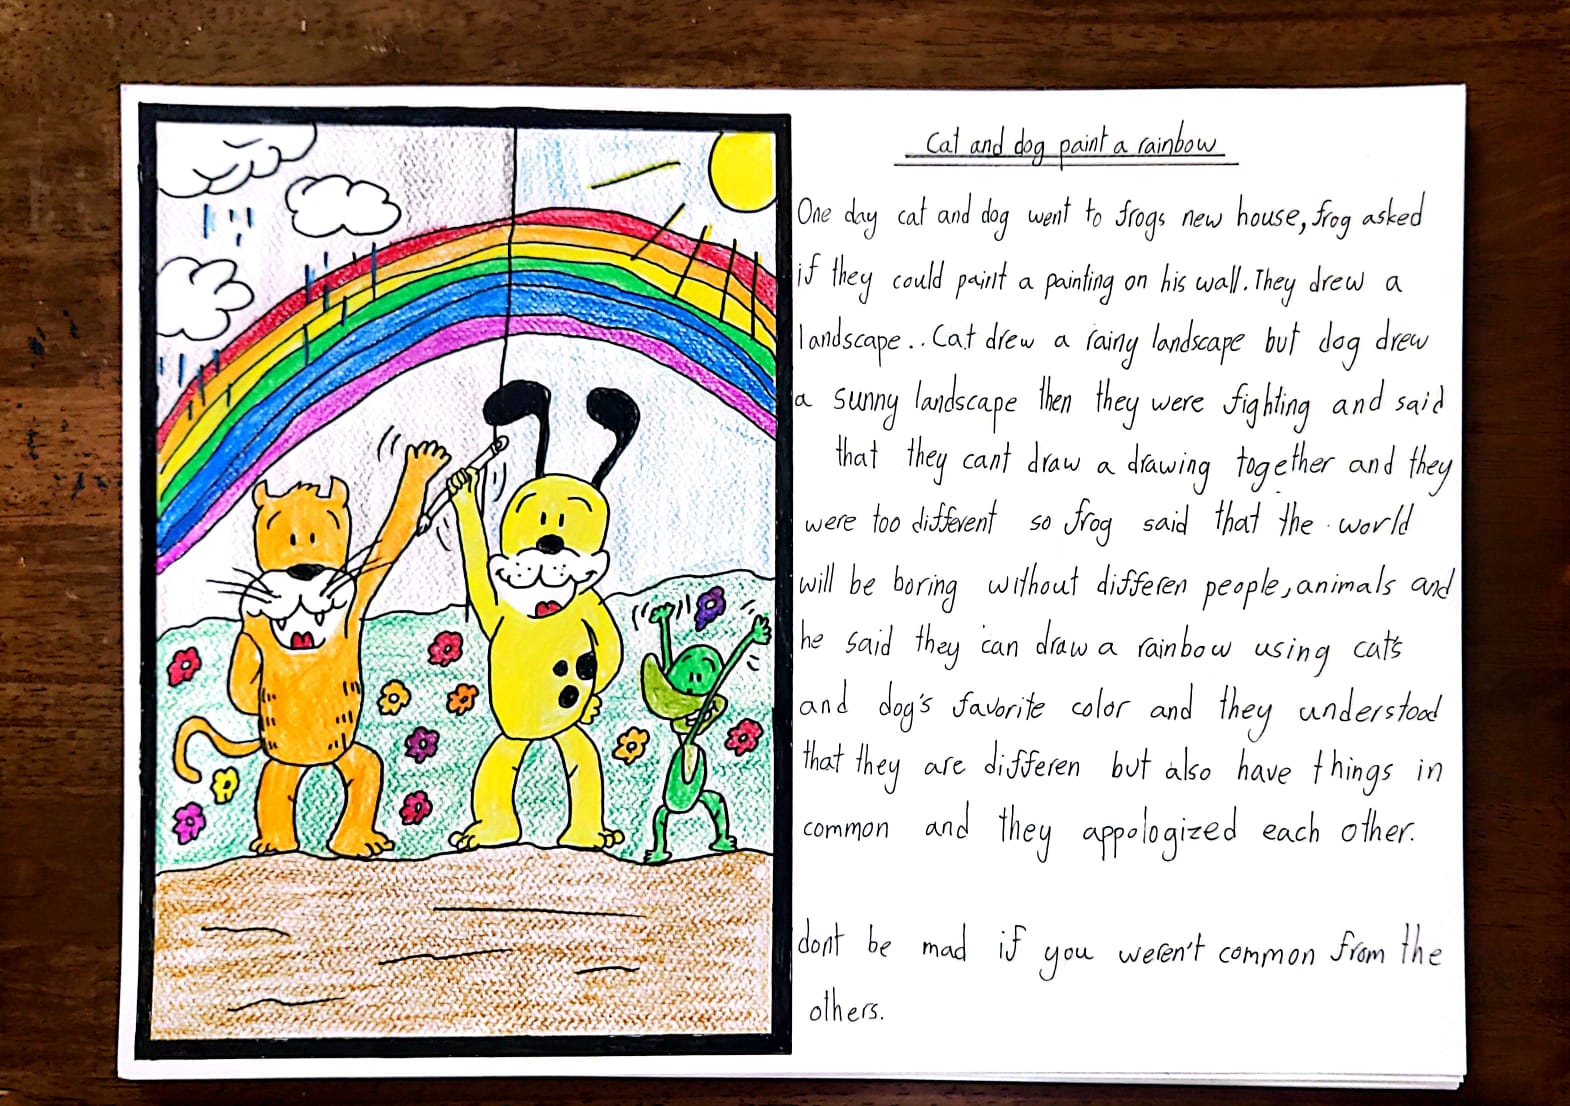 Cat and dog paint a rainbow
One day cat and dog went to frogs new house, frog asked
if they could paint a painting on his wall. They drew a
landscape.. Cat drew a rainy landscape but dog drew
a sunny landscape then they were fighting and said
that they cant draw a drawing together and they
were too different so frog said that the world
will be boring without differen people, animals and
he said they can draw a rainbow using cat's
and dog's favorite color and they understood
that they are differen but also have things in
common and they appologized each other.
dont be mad if you weren't common from the
others.